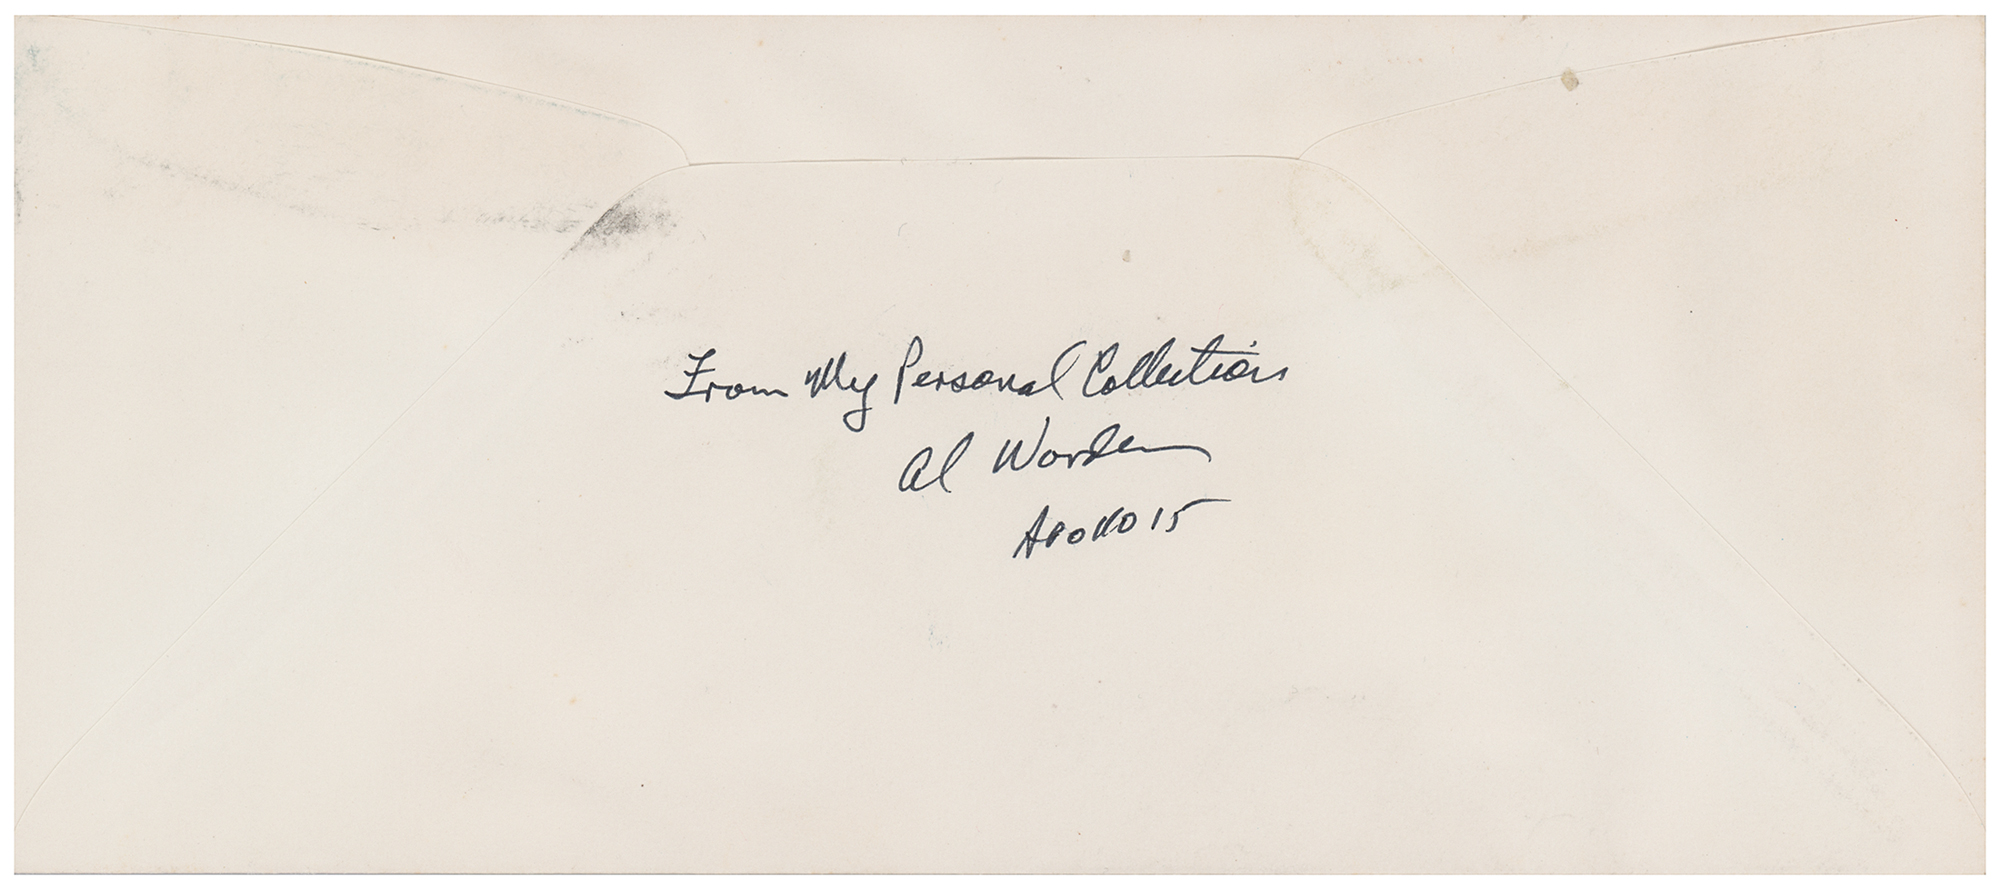 From My Personal Collection
Al Worden
Apollo 15